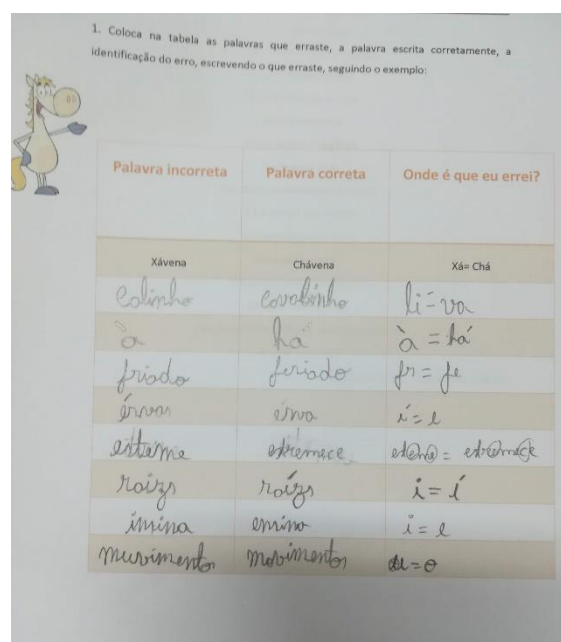 1. Coloca na tabela as palavras que erraste, a palavra escrita corretamente, a
identificação do erro, escrevendo o que erraste, seguindo o exemplo:
Palavra incorreta Palavra correta Onde é que eu errei?
Xávena Chávena Xá= Chá
Colinho cavalinho li=va
à há à = há
friado feriado fr = fe
érvas erva = e
esteme estremece = estremece
raizs raízs i = í
imina emina i = e
muvimentos movimentos u=o